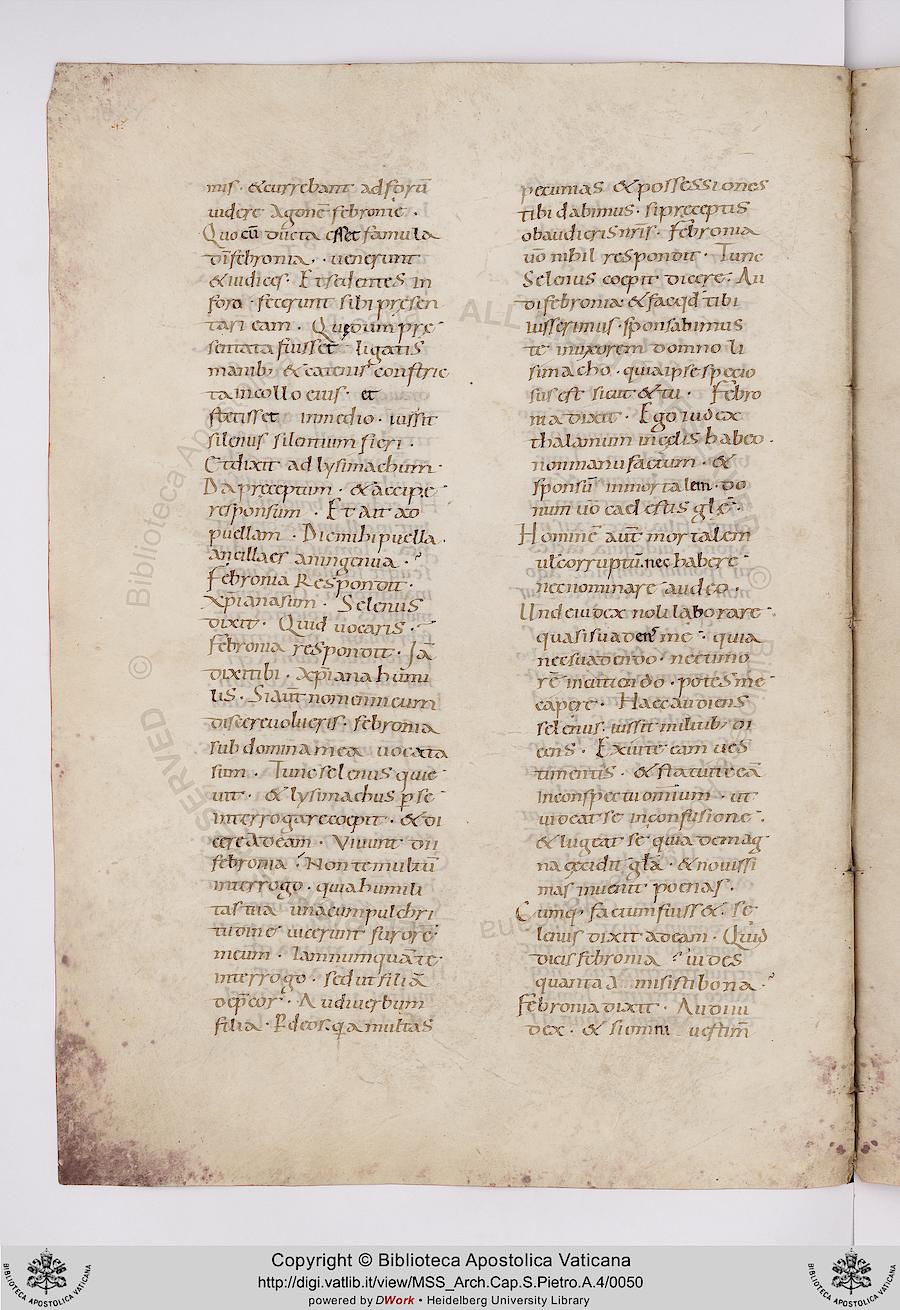 mis · & currebant ad forū
uidere Agonē febronie ·
Quo cū ducta esset famula
dī febronia · uenerunt
& iudices · Et sedentes in
foro · fecerunt sibi presen
tari eam · Que dum pre
sentata fuisset ligatis
manib; & catenis constric
ta in collo eius · et
stetisset in medio · iussit
silenus silentium fieri ·
Et dixit ad lysimachum ·
Da preceptum · & accipe
responsum · Et ait ad
puellam · Dic mihi puella ·
ancilla es an ingenua ·
Febronia Respondit ·
xp̄ianasum · Selenus
dixit · Quid uocaris ·
febronia respondit · Iā
dixi tibi · xp̄iana humi
lis · Si aūt nomen meum
discere uolueris · febronia
sub domina mea uocata
sum · Tunc selenus quie
uit · & lysimachus p se
interrogare coepit · & di
cere ad eam · Viuunt dii
febronia · Non te multū
interrogo · quia humili
tas tua una cum pulchri
tudine uicerunt furorē
meum · Iam numquā te
interrogo · sed ut filiā
depcor · Audi uerbum
filia · P deos · qa multas
pecunias & possessiones
tibi dabimus · si preceptis
obaudieris nr̄is · Febronia
uō nihil respondit · Tunc
Selenus coepit dicere · Au
di febronia & fac qd tibi
iusserimus · sponsabimus
te in uxorem domno li
simacho · quia ipse specio
sus est sicut & tu · Febro
nia dixit · Ego iudex
thalamum in celis habeo ·
non manu factum · &
sponsū inmortalem · do
num uō caelestis glē ·
Hominē aūt mortalem
ul corruptū · nec habere
nec nominare audeo ·
Unde iudex noli laborare ·
quasi suadens me · quia
nec suadendo · nec timo
rē incutiendo · potes me
capere · Haec audiens
selenus · iussit militib; di
cens · Exuite eam ues
timentis · & statuite eā
in conspectu omnium · ut
uideat se in confusione ·
& lugeat se quia de mag
na cecidit glā · & nouissi
mas inuenit poenas ·
Cumq; factum fuiss& · se
lenus dixit ad eam · Quid
dicis febronia uides
quanta amisisti bona ·
Febronia dixit · Audi iu
dex · & si omni uestim̄